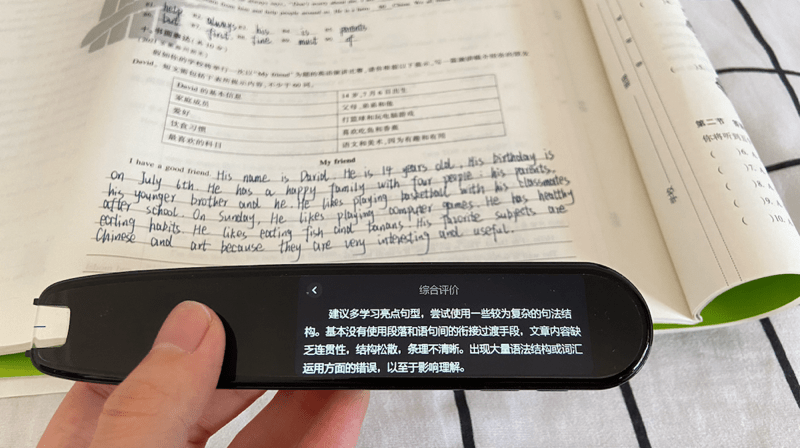 81. help 82. always 83. his 84. is 85. parents
86. last 87. first 88. time 89. must 90. of
十、书面表达(共 10 分)
David 的基本信息
14 岁，7 月 6 日出生
家庭成员
父母、弟弟和他
爱好
打篮球和玩电脑游戏
饮食习惯
喜欢吃鱼和香蕉
最喜欢的科目
语文和美术，因为有趣和有用
My friend
I have a good friend. His name is David. He is 14 years old. His birthday is
on July 6th. He has a happy family with four people: his parents,
his younger brother and he. He likes playing basketball with his classmates
after school. On Sunday, He likes playing computer games. He has healthy
eating habits. He likes eating fish and banans. His favorite subjects are
Chinese and art because they are very interesting and useful.
第二节
你将听到
综合评价
建议多学习亮点句型，尝试使用一些较为复杂的句法结
构。基本没有使用段落和语句间的衔接过渡手段，文章内容缺
乏连贯性，结构松散，条理不清晰。出现大量语法结构或词汇
运用方面的错误，以至于影响理解。